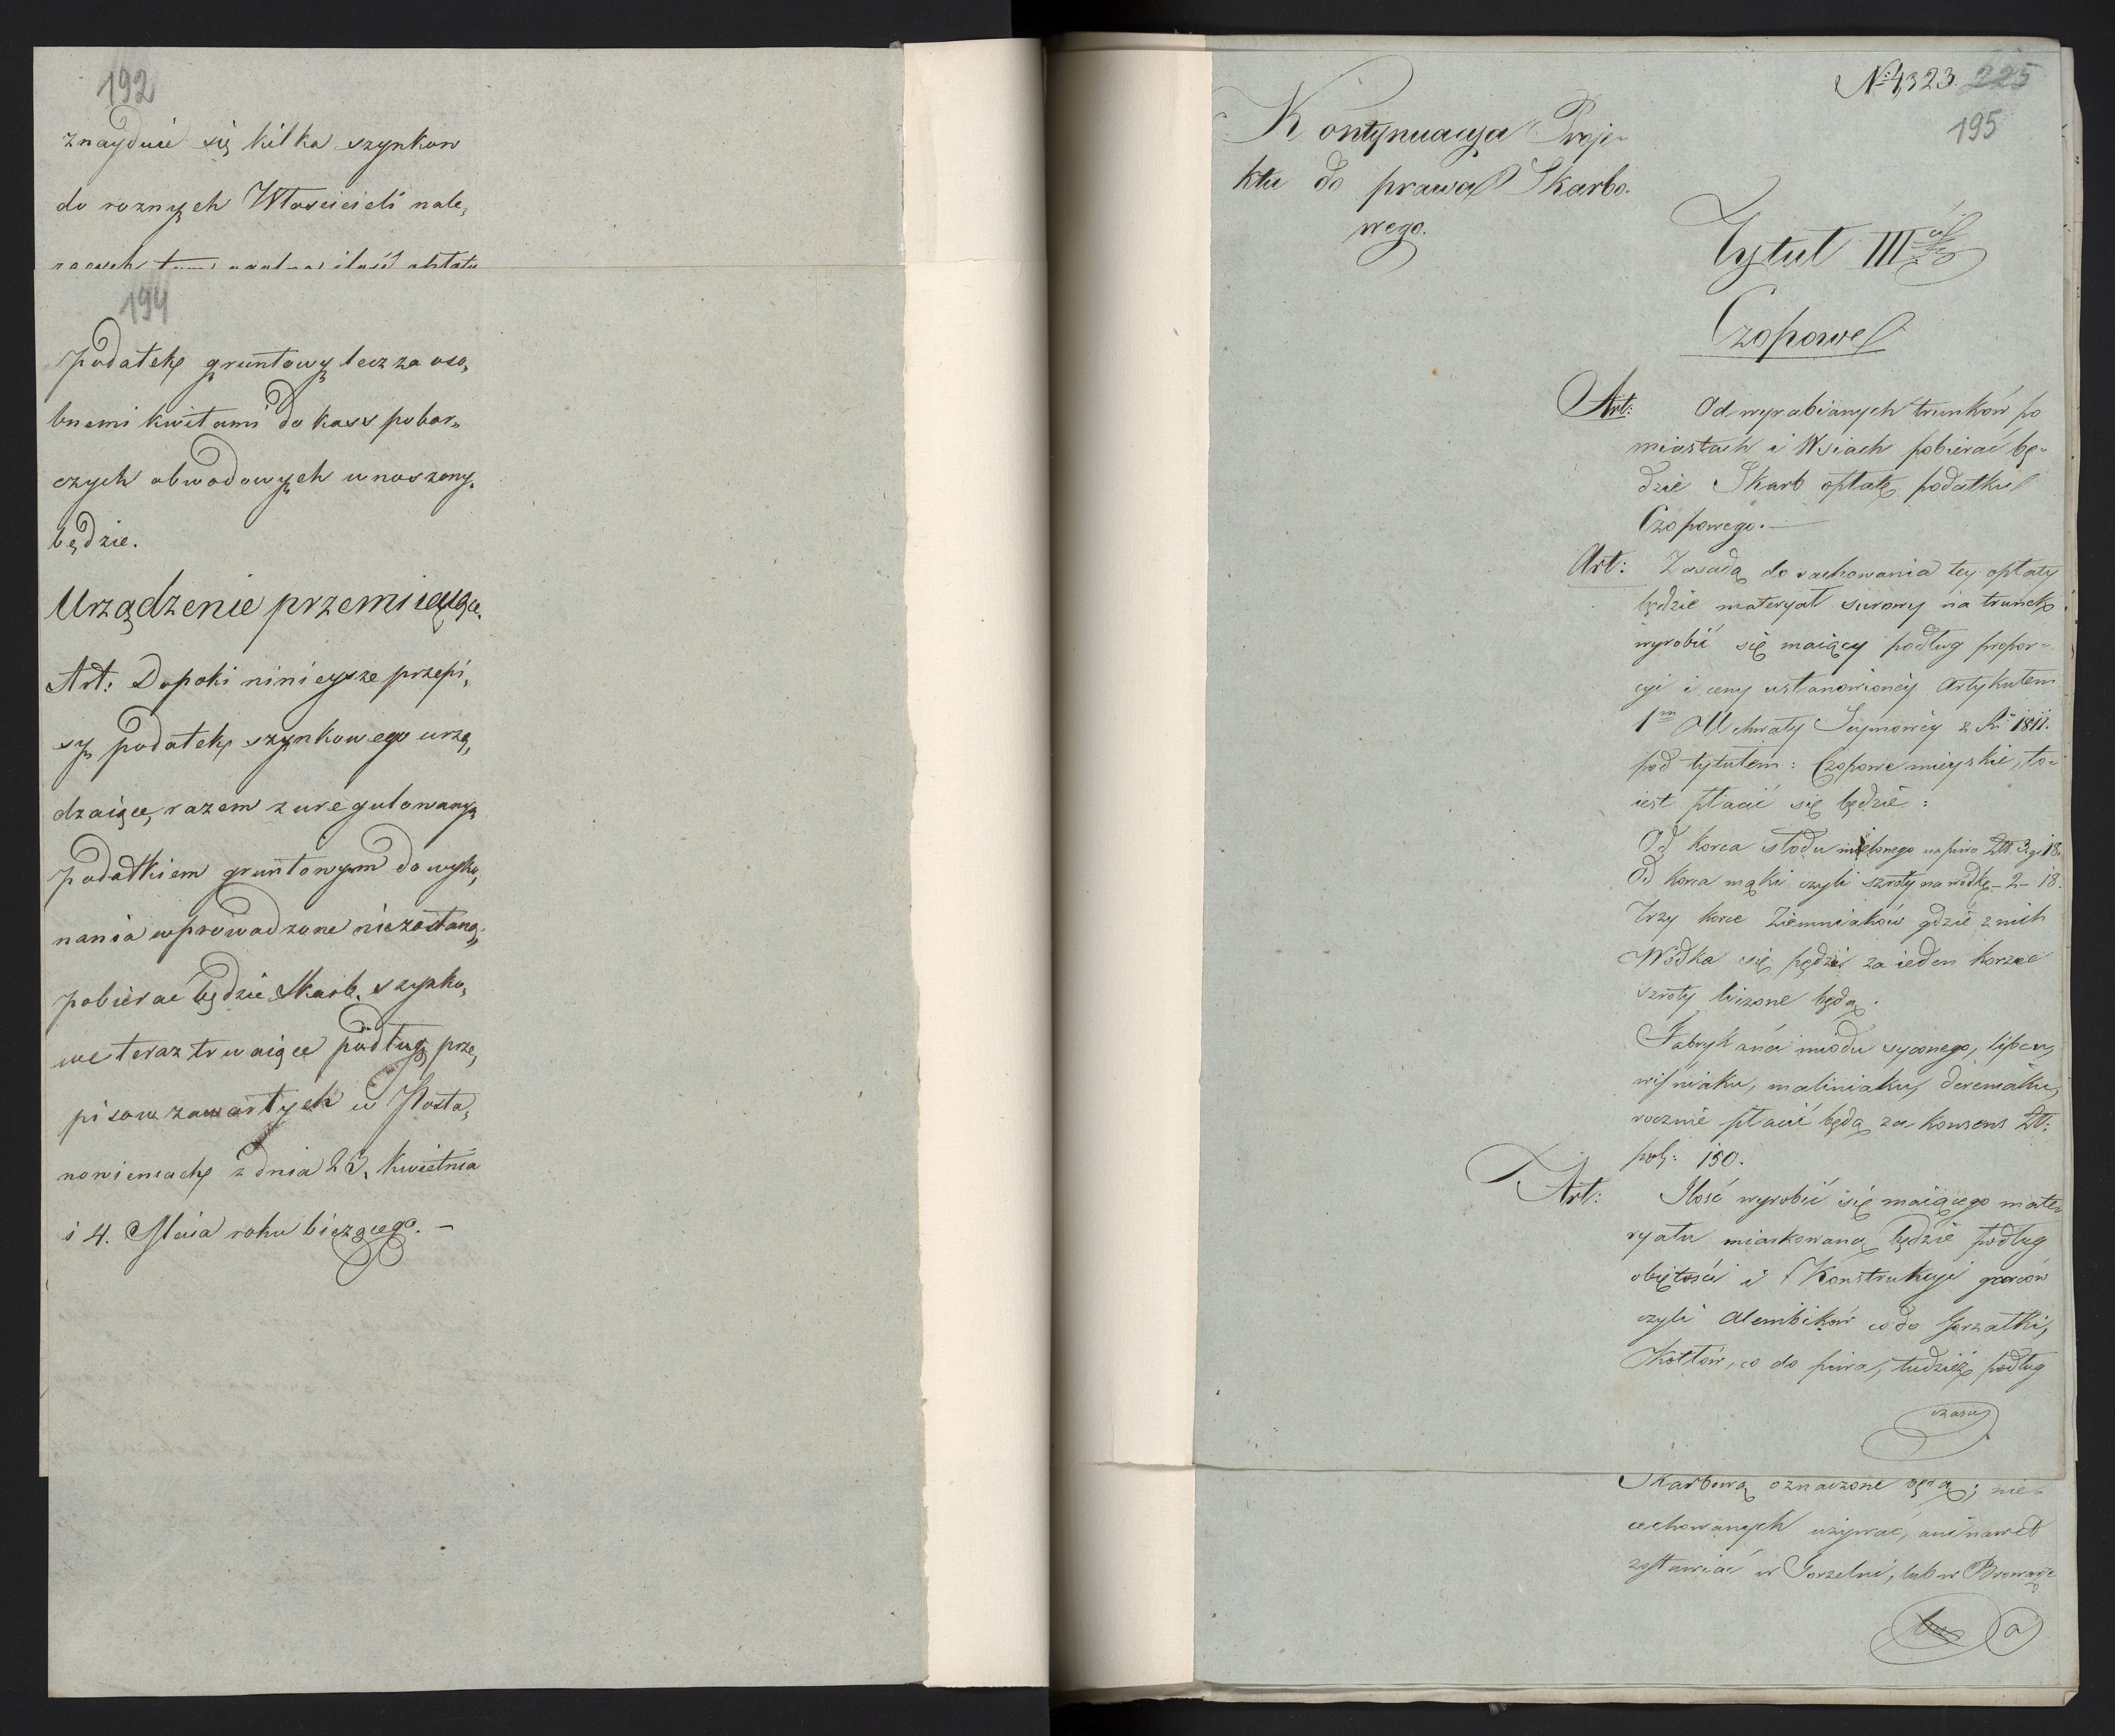 192
znayduie się kilka szynkow
do roznych Włascicieli nale,
194
podatek gruntowy lecz za oso,
bnemi kwitami do kass pobor„
czych obwodowych wnoszony
będzie.
Urządzenie przemiiaiące.
Art: Dopoki ninieysze przepi,
sy podatek szynkowego urzą,
dzaiące, razem z uregulowanym
podatkiem gruntowym do wyko,
nania wprowadzone niezostaną,
pobierać będzie Skarb, szynko,
we teraz trwaiące podług prze,
pisow zawartych w Posta,
nowieniach z dnia 23. Kwietnia
i 4. Maia roku bieżącego. —
No. 4323. 225
195
Kontynuacya Proje-
ktu do prawa Skarbo-
wego.
Tytuł III
Czopowe
Art: Od wyrabianych trunków po
miastach i Wsiach pobierać bę-
dzie Skarb opłatę podatku
Czopowego. —
Art: Zasadą do rachowania tey opłaty
będzie materyał surowy na trunek
wyrobić się maiący podług propor-
cyi i ceny ustanowioney Artykułem
1m Uchwały Seymowéy z R. 1811.
pod tytułem: Czopowe mieyskie, to-
iest płacić się będzie:
Od korca słodu mielonego na piwo Zł. 3. g. 18.
Od korca mąki czyli szroty na wódkę - 2 - 18.
Trzy korce Ziemniaków gdzie z nich
Wódka się pędzi za ieden korzec
szroty liczone będą.
Fabrykanci miodu syconego, lipcu,
wiśniaku, maliniaku, dereniaku,
rocznie płacić będą za konsens Zł:
pol: 150.
Art: Ilość wyrobić się maiącego mate-
ryału miarkowaną będzie podług
obiętości i Konstrukcyi garców
czyli Alembików co do Gorzałki,
Kotłów, co do piwa, tudzież podług
czasu
Skarbową oznaczone będą; nie-
cechowanych używać, ani nawet
zostawiać w Gorzelni, lub w Browarze
a